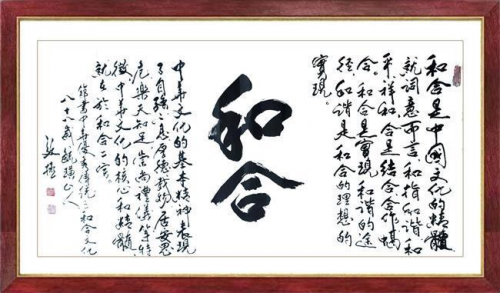 和合是中國文化的精髓
就词意而言和指和諧和
平祥和合是结合合作
合。和合是實現和谐的途
径，和谐是和合的理想的
實現。
和合
中華文化的基本精神表現
了自强不息厚德載物居安思
危樂天知足崇尚禮儀等特
徵中華文化的核心和精髓
就在於和合二字。
作書中華優秀傳統之和合文化
八十八叟
山人